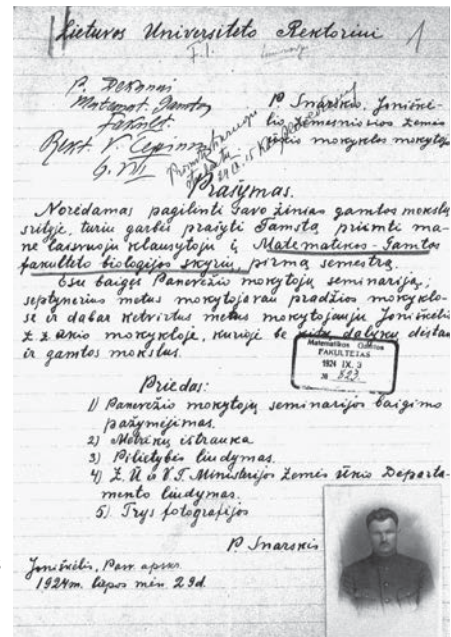 Lietuvos Universiteto Rektoriui
1
P. Dekanui
Matemat. Gamtos
Fakult.
Rekt. V. Čepinskis
6. VII
P. Snarskio, Joniškė-
lio žemesniosios žemės
ūkio mokyklos mokytojo
Prašymas.
Norėdamas pagilinti savo žinias gamtos mokslų
srityje, turiu garbės prašyti Tamstą priimti ma-
ne laisvuoju klausytoju į Matematikos-Gamtos
fakulteto biologijos skyrių, pirmą semestrą.
Esu baigęs Panevėžio mokytojų seminariją;
septynerius metus mokytojavau pradžios mokyklo-
se ir dabar ketvirtus metus mokytojauju Joniškėlio
ž. ž. ūkio mokykloje, kurioje be kitų dalykų dėstau
ir gamtos mokslus.
Matematikos Gamtos
FAKULTETAS
1924 IX. 3
№ 523
Priedas:
1) Panevėžio mokytojų seminarijos baigimo
pažymėjimas.
2) Metrikų ištrauka
3) Pilietybės liudymas.
4) Ž. Ū. ir V. T. Ministerijos Žemės Ūkio Departa-
mento liudymas.
5) Trys fotografijos
P. Snarskis
Joniškėlis, Pan. apskr.
1924 m. liepos mėn. 29 d.